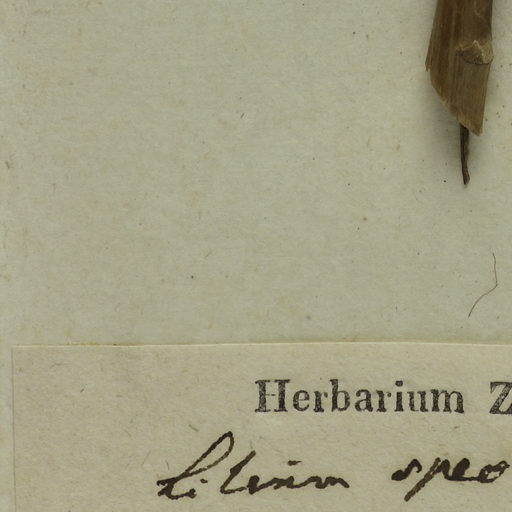 Herbarium Z
Lilium spec